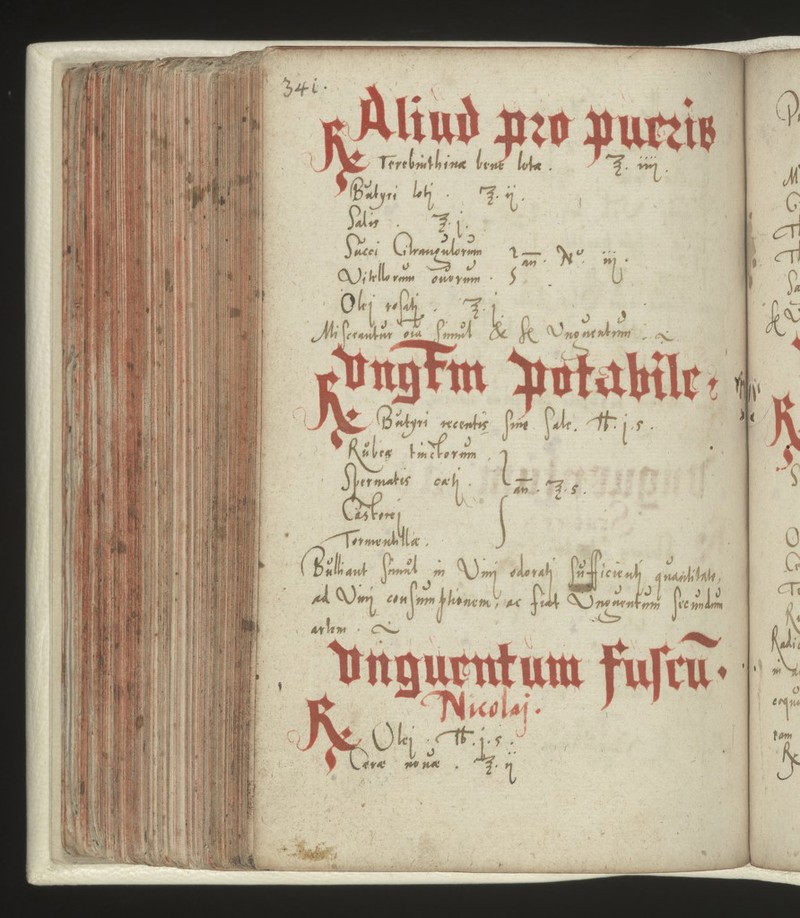 341.
Aliud pro pueris
℞ Terebinthinæ bene lotæ. ʒ. iiij.
Butyri loti. ʒ. ij.
Salis. ʒ. j.
Succi Citrangulorum } añ. Nº. iij.
Vitellorum ouorum. }
Olej rosati. ʒ. j.
Misceantur oīa simul & f. Vnguentum.
Vngt̄m potabile.
℞ Butyri recentis sine sale. ℔. j. s.
Rubeæ tinctorum.
Spermatis cæti. } añ. ʒ. s.
Castorej
Tormentillæ.
Bulliant simul in Vini odorati sufficienti quantitate,
ad Vini consumptionem, ac fiat Vnguentum secundum
artem.
Vnguentum fuscū.
Nicolaj.
℞ Olej. ℔. j. s.
Ceræ nouæ. ʒ. ij